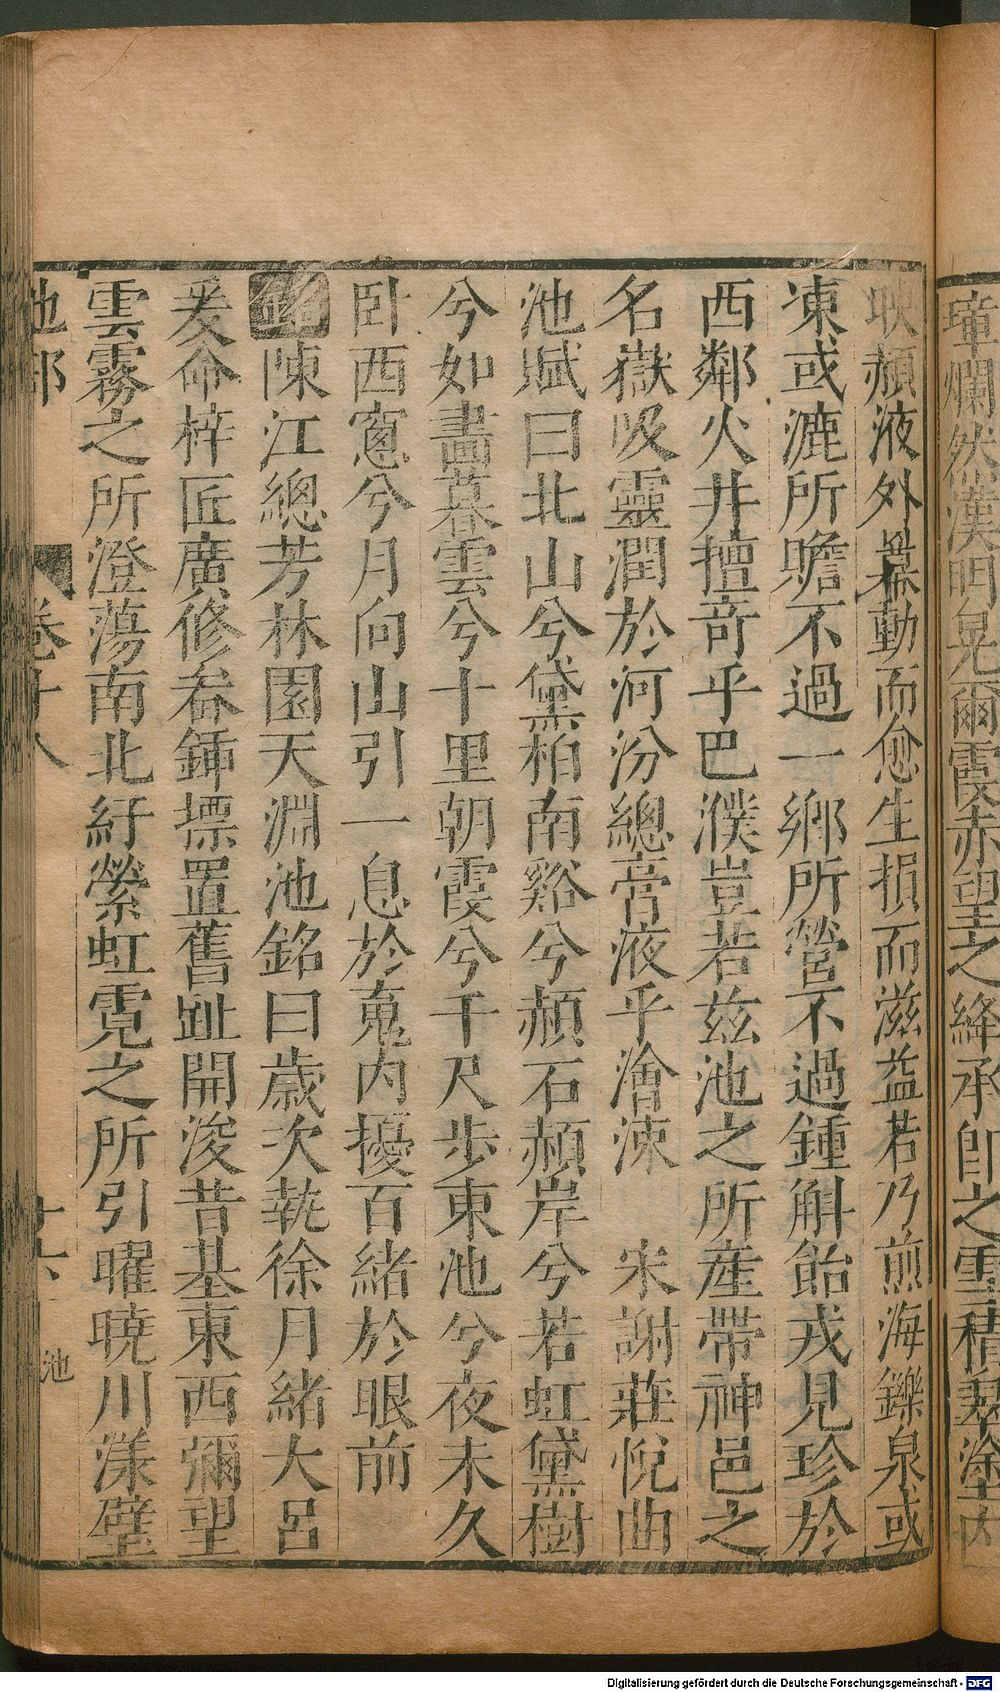 瑋爛然漢明晃爾霞赤望之絳承即之雪積表塗内
映赬液外羃動而愈生損而滋益若乃煎海鑠泉或
凍或漉所贍不過一鄉所營不過鍾斛飴戎見珍於
西鄰火井擅竒乎巴濮豈若兹池之所産帶神邑之
名嶽吸靈潤於河汾總膏液乎澮涑　宋謝莊悅曲
池賦曰北山兮黛柏南谿兮赬石赬岸兮若虹黛樹
兮如畫暮雲兮十里朝霞兮千尺步東池兮夜未久
卧西窻兮月向山引一息於蒐内擾百緒於眼前
銘陳江總芳林園天淵池銘曰歲次執徐月緒大呂
爰命梓匠廣修畚鍤摽置舊趾開浚昔基東西彌望
雲霧之所澄蕩南北紆縈虹霓之所引曜曉川漾壁
池部　卷十八　十六　池
Digitalisierung gefördert durch die Deutsche Forschungsgemeinschaft - DFG